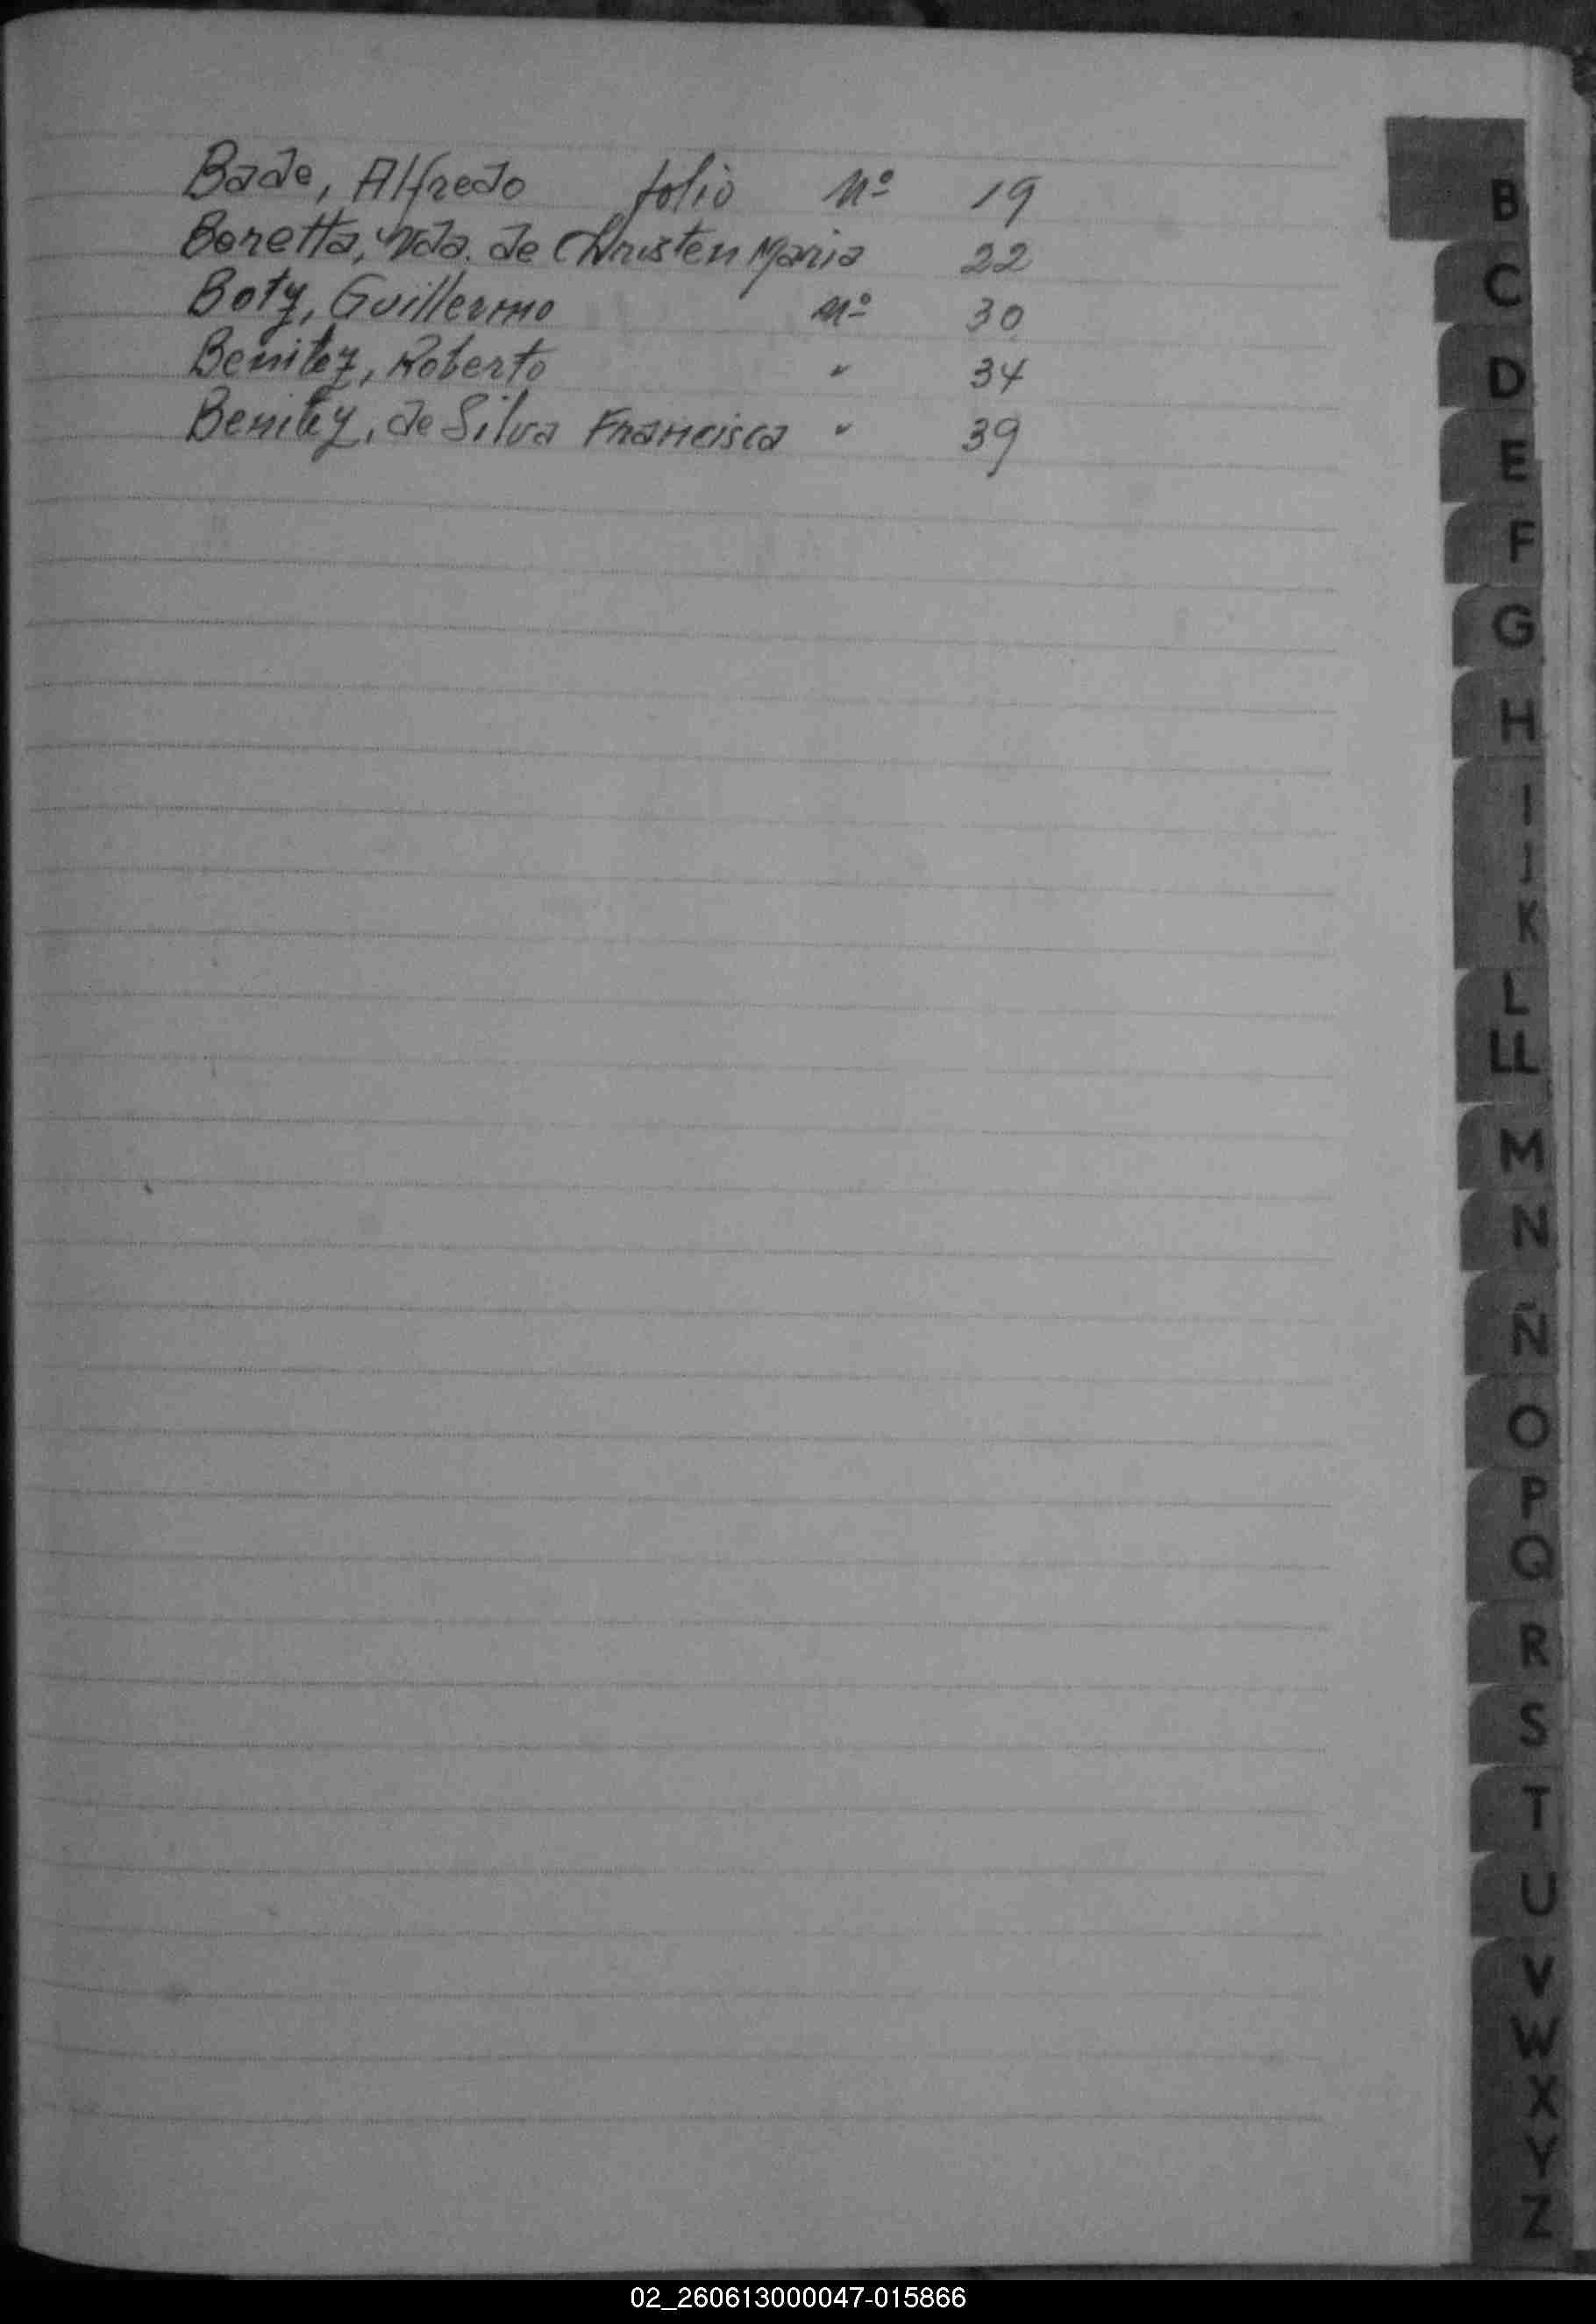 Bade, Alfredo folio Nº 19
Boretta, Vda. de Christen Maria 22
Boty, Guillermo Nº 30
Benitez, Roberto " 34
Benitez, de Silva Francisca " 39
B
C
D
E
F
G
H
I
J
K
L
LL
M
N
Ñ
O
P
Q
R
S
T
U
V
W
X
Y
Z
02_260613000047-015866